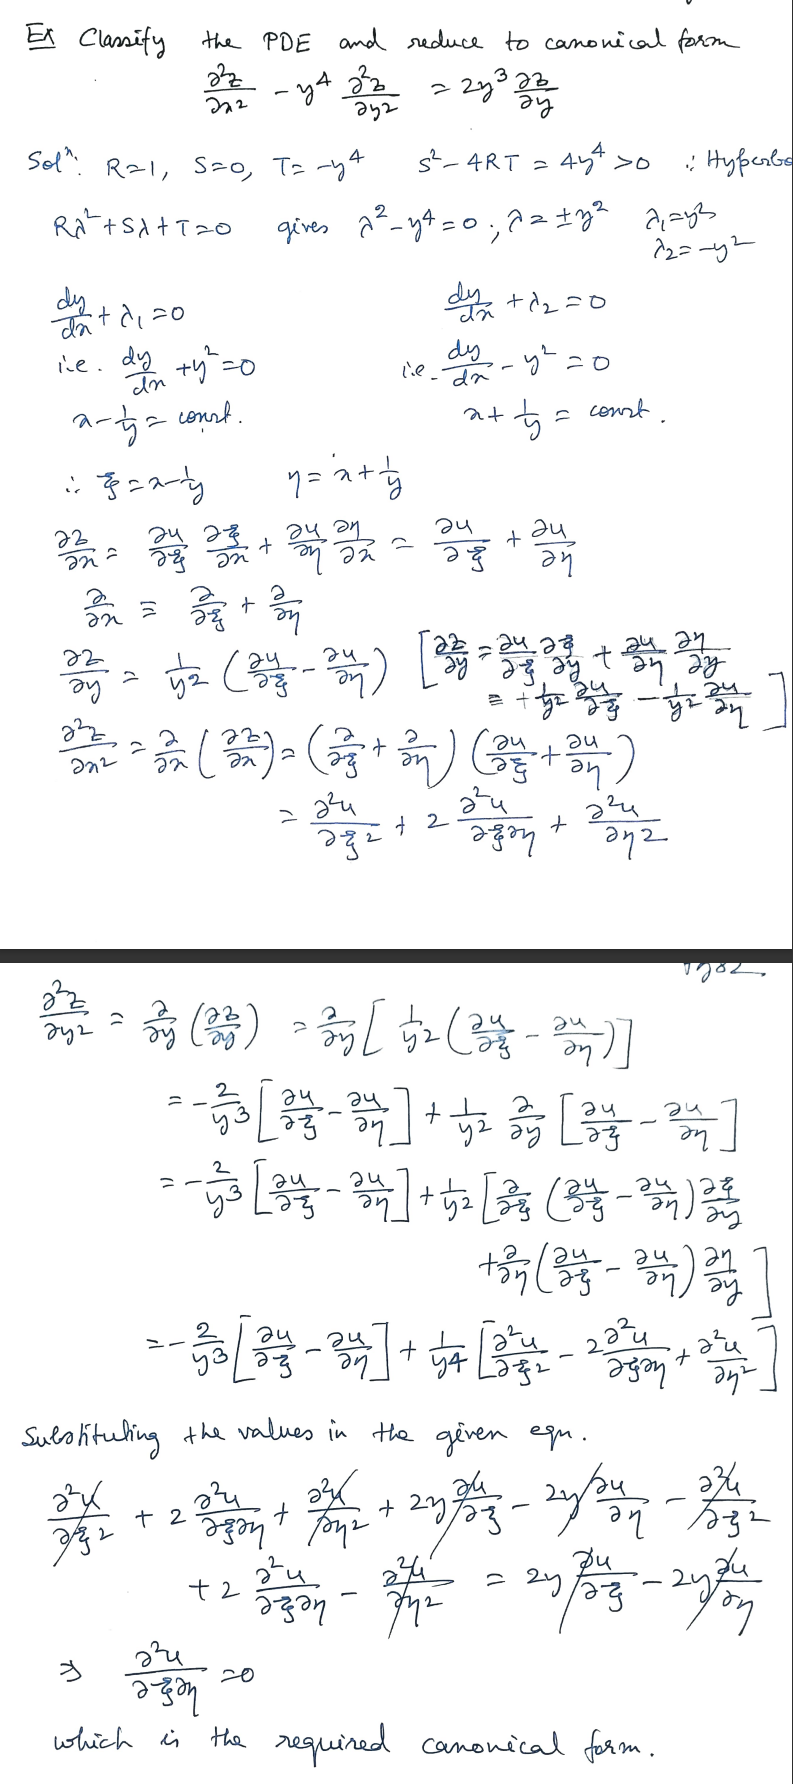 Ex Classify the PDE and reduce to canonical form
∂²z/∂x² - y⁴ ∂²z/∂y² = 2y³ ∂z/∂y
Solⁿ: R=1, S=0, T=-y⁴ S²-4RT = 4y⁴ >0 ∴ Hyperbo
Rλ²+Sλ+T=0 gives λ²-y⁴=0; λ=±y² λ₁=y²
λ₂=-y²
dy/dx + λ₁=0 dy/dx + λ₂=0
i.e. dy/dx +y²=0 i.e. dy/dx - y² = 0
x-1/y = const. x+1/y = const.
∴ ξ=x-1/y η=x+1/y
∂z/∂x = ∂u/∂ξ ∂ξ/∂x + ∂u/∂η ∂η/∂x = ∂u/∂ξ + ∂u/∂η
∂/∂x ≡ ∂/∂ξ + ∂/∂η
∂z/∂y = 1/y² (∂u/∂ξ - ∂u/∂η) [∂z/∂y = ∂u/∂ξ ∂ξ/∂y + ∂u/∂η ∂η/∂y
= +1/y² ∂u/∂ξ - 1/y² ∂u/∂η ]
∂²z/∂x² = ∂/∂x (∂z/∂x) = (∂/∂ξ + ∂/∂η) (∂u/∂ξ + ∂u/∂η)
= ∂²u/∂ξ² + 2 ∂²u/∂ξ∂η + ∂²u/∂η²
∂²z/∂y² = ∂/∂y (∂z/∂y) = ∂/∂y [ 1/y² (∂u/∂ξ - ∂u/∂η)]
= -2/y³ [∂u/∂ξ - ∂u/∂η] + 1/y² ∂/∂y [∂u/∂ξ - ∂u/∂η]
= -2/y³ [∂u/∂ξ - ∂u/∂η] + 1/y² [∂/∂ξ (∂u/∂ξ - ∂u/∂η) ∂ξ/∂y
+ ∂/∂η (∂u/∂ξ - ∂u/∂η) ∂η/∂y ]
= -2/y³ [∂u/∂ξ - ∂u/∂η] + 1/y⁴ [∂²u/∂ξ² - 2∂²u/∂ξ∂η + ∂²u/∂η² ]
Substituting the values in the given eqn.
∂²u/∂ξ² + 2 ∂²u/∂ξ∂η + ∂²u/∂η² + 2y ∂u/∂ξ - 2y ∂u/∂η - ∂²u/∂ξ²
+ 2 ∂²u/∂ξ∂η - ∂²u/∂η² = 2y ∂u/∂ξ - 2y ∂u/∂η
⇒ ∂²u/∂ξ∂η = 0
which is the required canonical form.